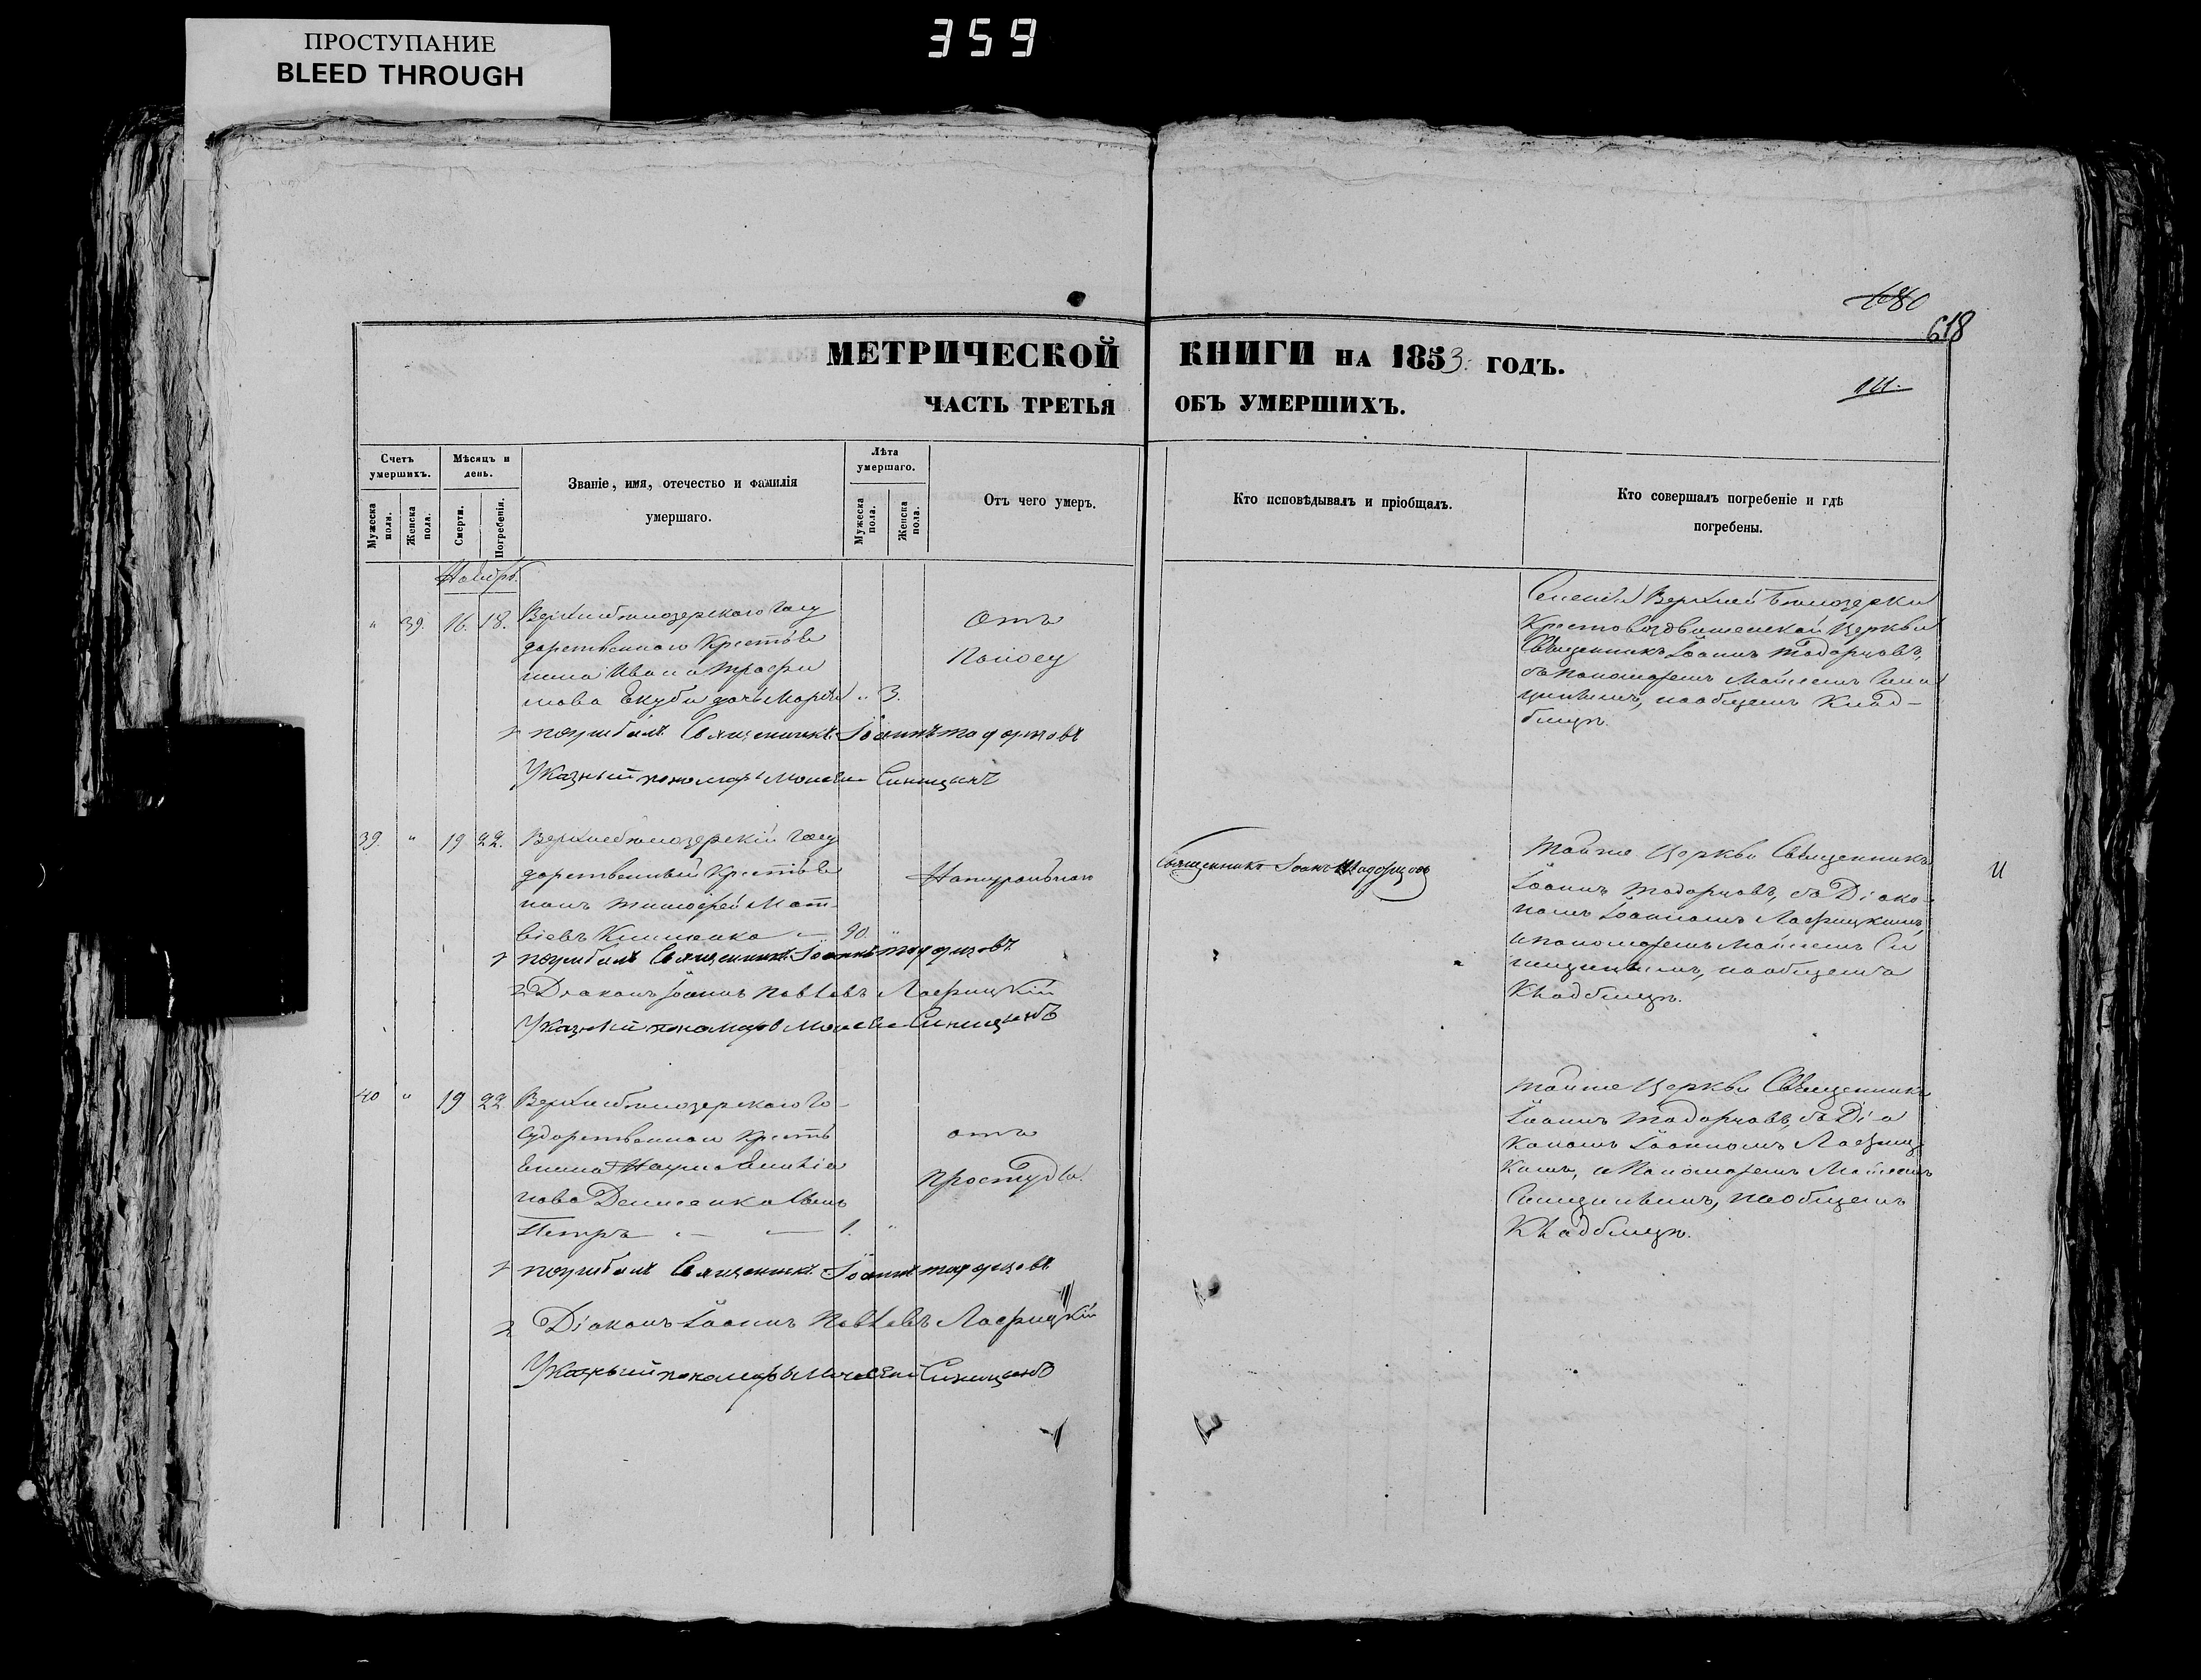 ПРОСТУПАНИЕ
BLEED THROUGH
359
680
618
МЕТРИЧЕСКОЙ КНИГИ НА 1853 ГОДЪ.
ЧАСТЬ ТРЕТЬЯ ОБЪ УМЕРШИХЪ.
Счетъ умершихъ.
Мужеска поли.
Женска пола.
Мѣсяцъ и день.
Смерти.
Погребенія.
Званіе, имя, отечество и фамилія
умершаго.
Лѣта умершаго.
Мужеска пола.
Женска пола.
Отъ чего умеръ.
Кто исповѣдывалъ и пріобщалъ.
Кто совершалъ погребеніе и гдѣ
погребены.
Ноябрь.
" 39. 16. 18.
Верхнебѣлозерскаго Госу
дарственнаго Крестья
нина Ивана Трофи
мова дочь Марія " 3.
отъ
Поносу
Селенія Верхней Бѣлозерки
Крестовоздвиженской Церкви
Священникъ Іоаннъ Тодорцовъ,
съ Пономаремъ Моисеемъ Сини
цинымъ, на общемъ Клад-
бищѣ.
погребалъ Священникъ Іоаннъ Тодорцовъ
Указный пономарь Моисей Синицынъ
39. " 19 22.
Верхнебѣлозерскій Госу
дарственный Крестья
нинъ Тимофей Мат-
віевъ 90. "
Натуральною
Священникъ Іоаннъ Тодорцовъ
Тойже Церкви Священникъ
Іоаннъ Тодорцовъ, съ Діако
номъ Іоанномъ Лаврицкимъ,
и пономаремъ Моисеемъ Си
ницинымъ, на общемъ
Кладбищѣ.
погребалъ Священникъ Іоаннъ Тодорцовъ
2 Діаконъ Іоаннъ Павловъ Лаврицкій
Указный пономарь Моисей Синицынъ
40 " 19 22
Верхнебѣлозерскаго Го-
сударственнаго Кресть
янина Наума
нова Денисенка сынъ
Петръ 1. "
отъ
простуды.
Тойже Церкви Священникъ
Іоаннъ Тодорцовъ, съ Діа
кономъ Іоанномъ Лавриц
кимъ, и Пономаремъ Моисеемъ
Синицинымъ, на общемъ
Кладбищѣ.
погребалъ Священникъ Іоаннъ Тодорцовъ
2 Діаконъ Іоаннъ Павловъ Лаврицкій
Указный пономарь Моисей Синицынъ